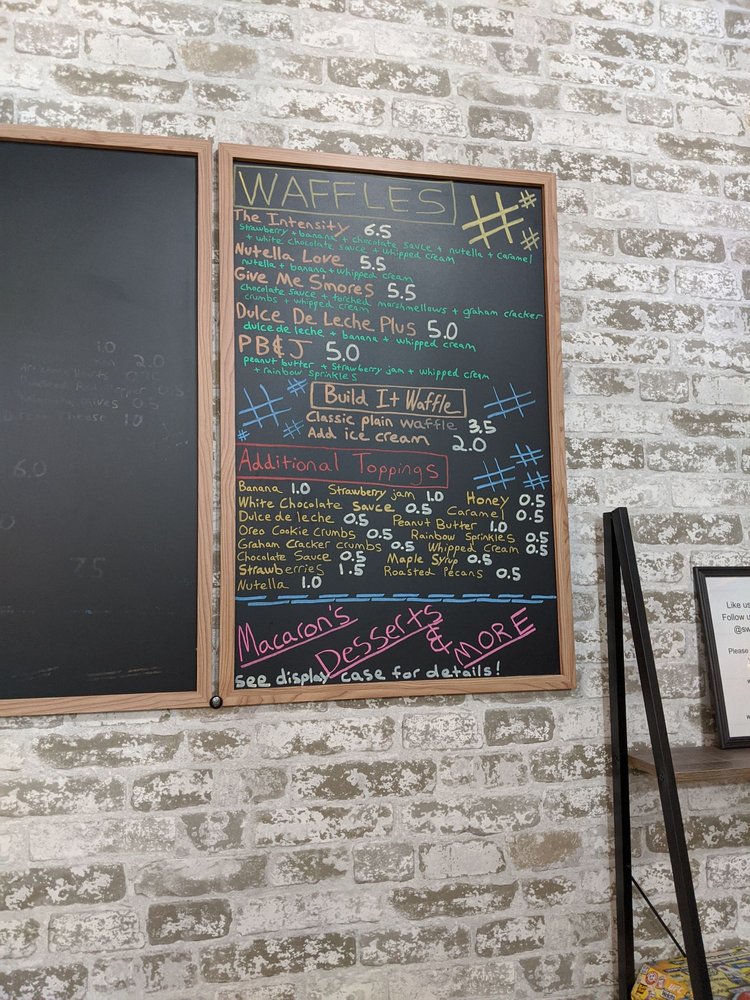 WAFFLES
The Intensity 6.5
strawberry + banana + chocolate sauce + nutella + caramel
+ white chocolate sauce + whipped cream
Nutella Love 5.5
nutella + banana + whipped cream
Give Me S'mores 5.5
chocolate sauce + torched marshmellows + graham cracker
crumbs + whipped cream
Dulce De Leche Plus 5.0
dulce de leche + banana + whipped cream
PB&J 5.0
peanut butter + strawberry jam + whipped cream
+ rainbow sprinkles
Build It Waffle
Classic plain waffle 3.5
Add ice cream 2.0
Additional Toppings
Banana 1.0 Strawberry jam 1.0 Honey 0.5
White Chocolate Sauce 0.5 Caramel 0.5
Dulce de leche 0.5 Peanut Butter 1.0
Oreo Cookie Crumbs 0.5 Rainbow Sprinkles 0.5
Graham Cracker crumbs 0.5 Whipped Cream 0.5
Chocolate Sauce 0.5 Maple Syrup 0.5
Strawberries 1.5 Roasted Pecans 0.5
Nutella 1.0
Macaron's
Desserts
& MORE
see display case for details!
1.0 2.0
6.0
7.5
Like us
Follow u
@sw
Please